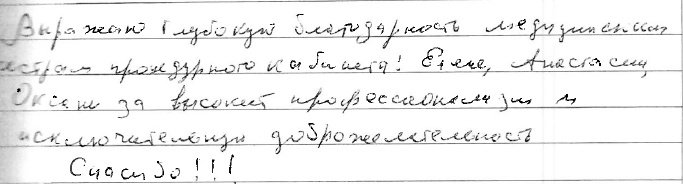 Выражаю глубокую благодарность медицинским
сестрам процедурного кабинета! Елене, Анастасии,
Оксане за высокий профессионализм и
исключительную доброжелательность
Спасибо!!!